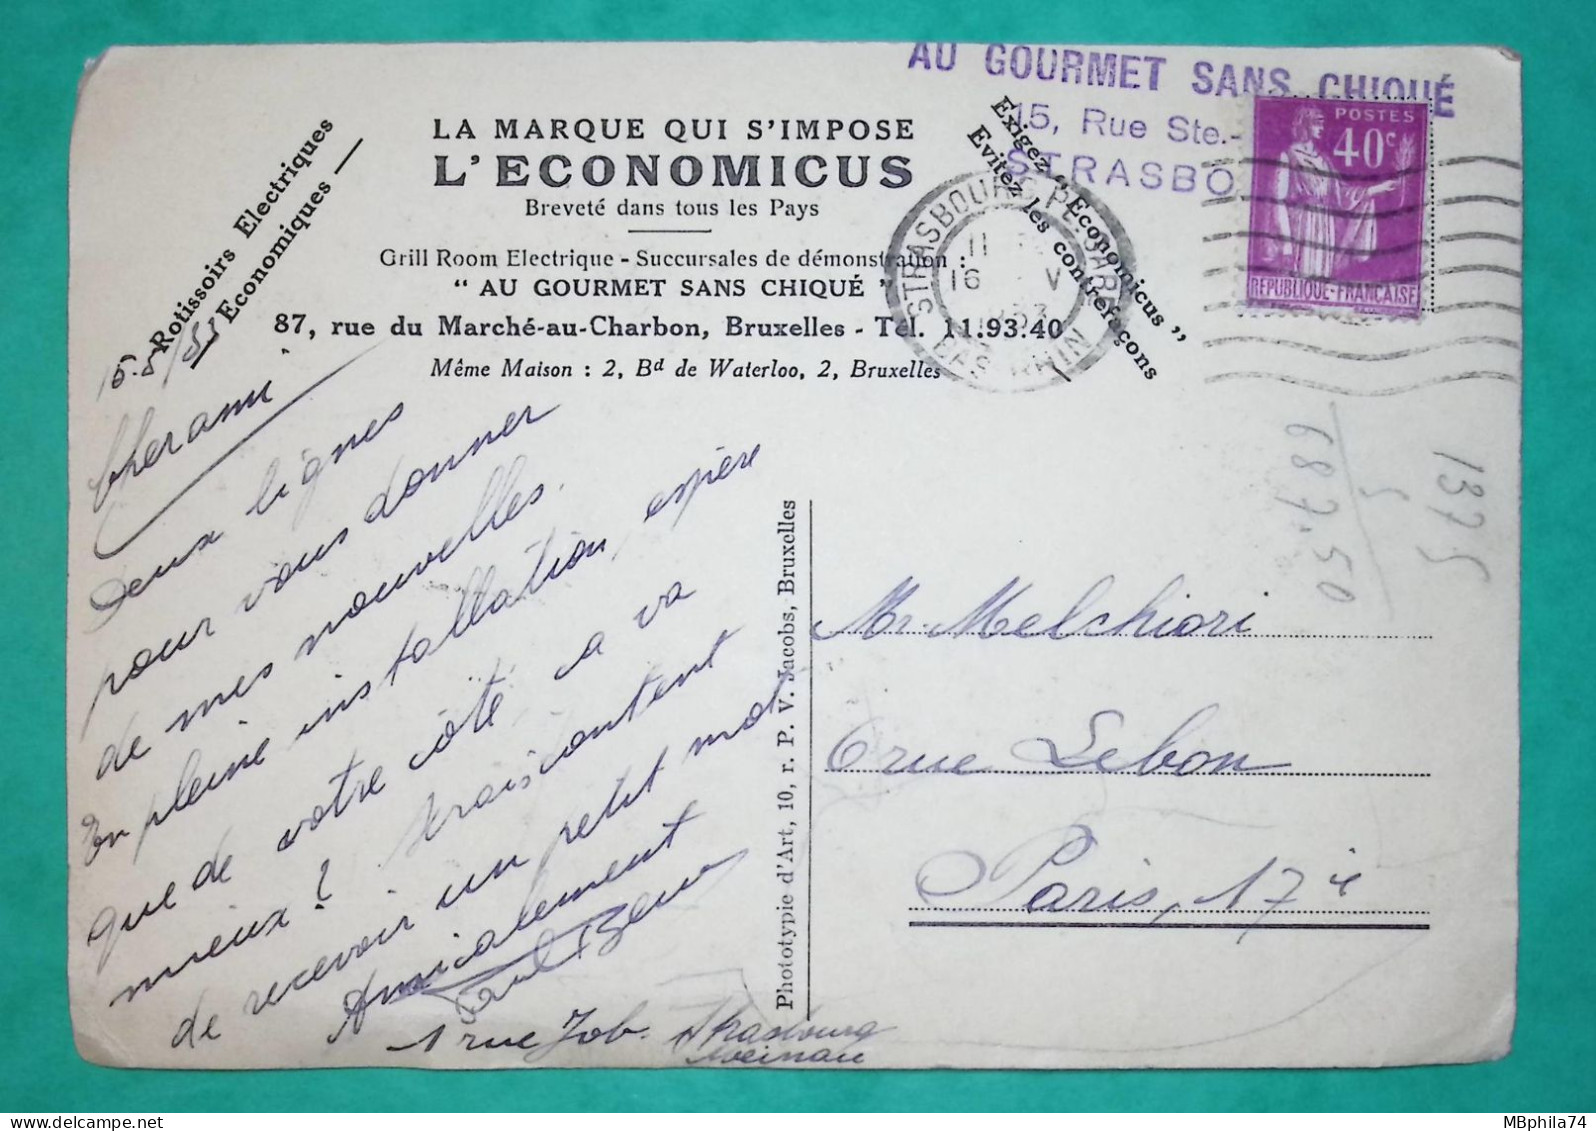 AU GOURMET SANS CHIQUÉ
15, Rue Ste.-
STRASBO
POSTES
40c
REPUBLIQUE-FRANÇAISE
Rotissoirs Electriques
Economiques
LA MARQUE QUI S'IMPOSE
L'ECONOMICUS
Breveté dans tous les Pays
Grill Room Electrique - Succursales de démonstration :
“ AU GOURMET SANS CHIQUÉ ”
87, rue du Marché-au-Charbon, Bruxelles - Tél. 11.93.40
Même Maison : 2, Bd de Waterloo, 2, Bruxelles
Exigez “ Economicus ”
Evitez les contrefaçons
STRASBOURG PL. GARE
11
16 V
BAS RHIN
Cher ami
Deux lignes
pour vous donner
de mes nouvelles.
En pleine installation, espère
que de votre côté, ca va
mieux? Serais content
de recevoir un petit mot
Amicalement
Paul
1 rue Job. Strasbourg
Meinau
Phototypie d'Art, 10, r. P. V. Jacobs, Bruxelles
Mr. Melchiori
6 rue Lebon
Paris, 17e
1375
5
687.50
MBphila74